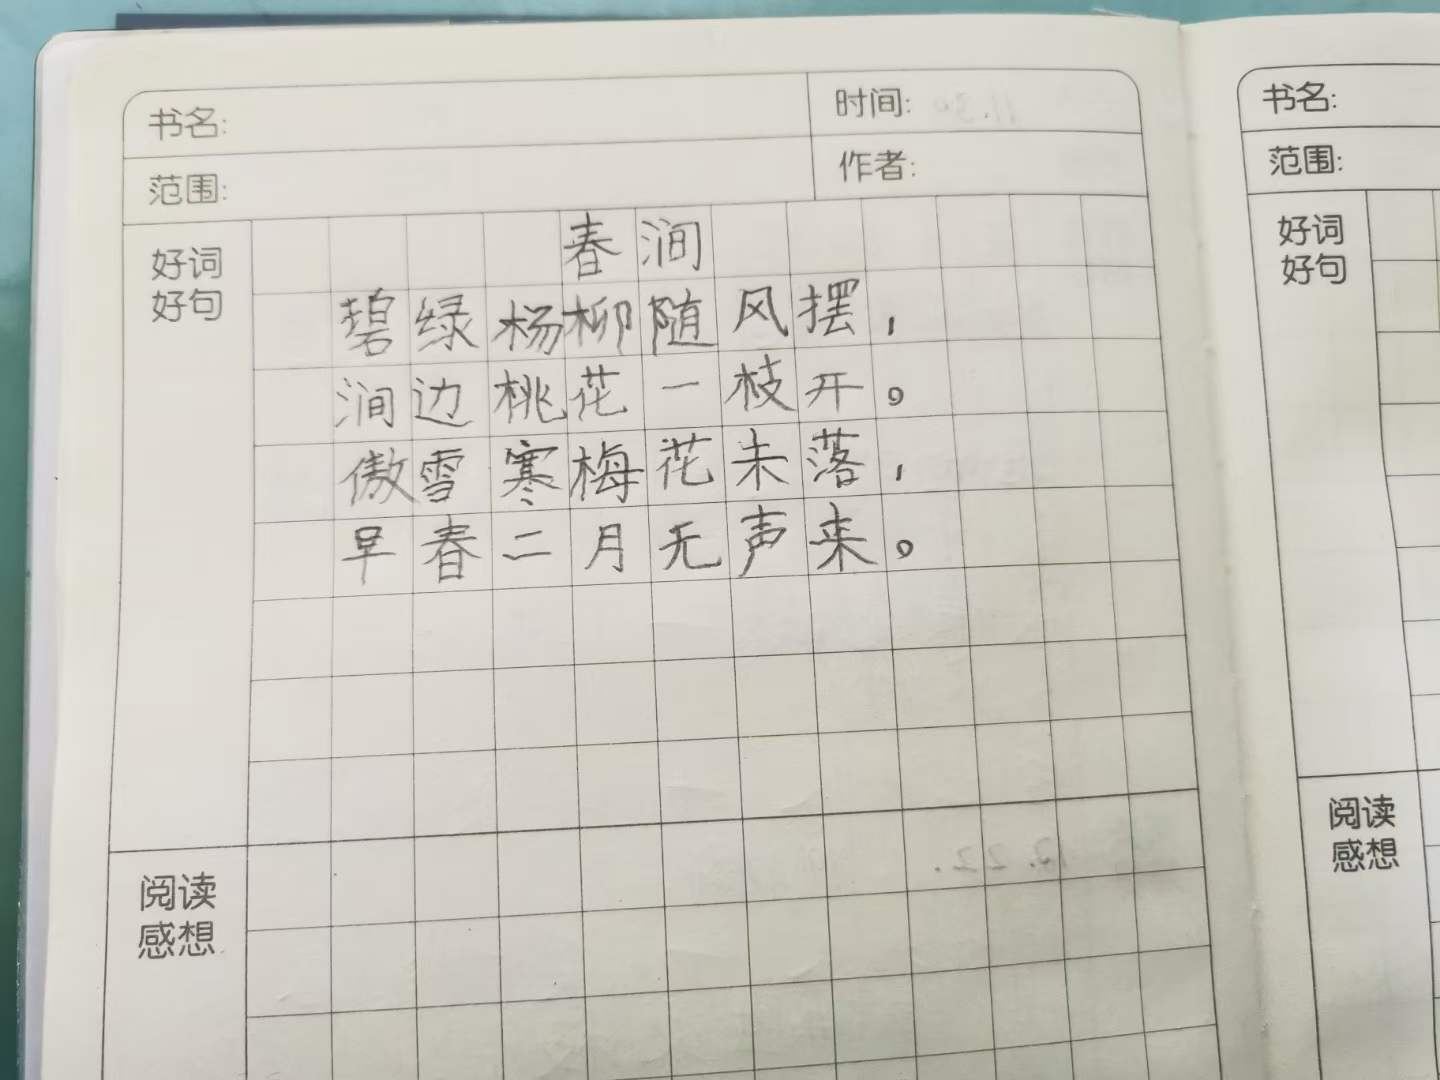 书名:
时间:
范围:
作者:
好词
好句
春涧
碧绿杨柳随风摆，
涧边桃花一枝开。
傲雪寒梅花未落，
早春二月无声来。
阅读
感想
12.22.
书名:
范围:
好词
好句
阅读
感想